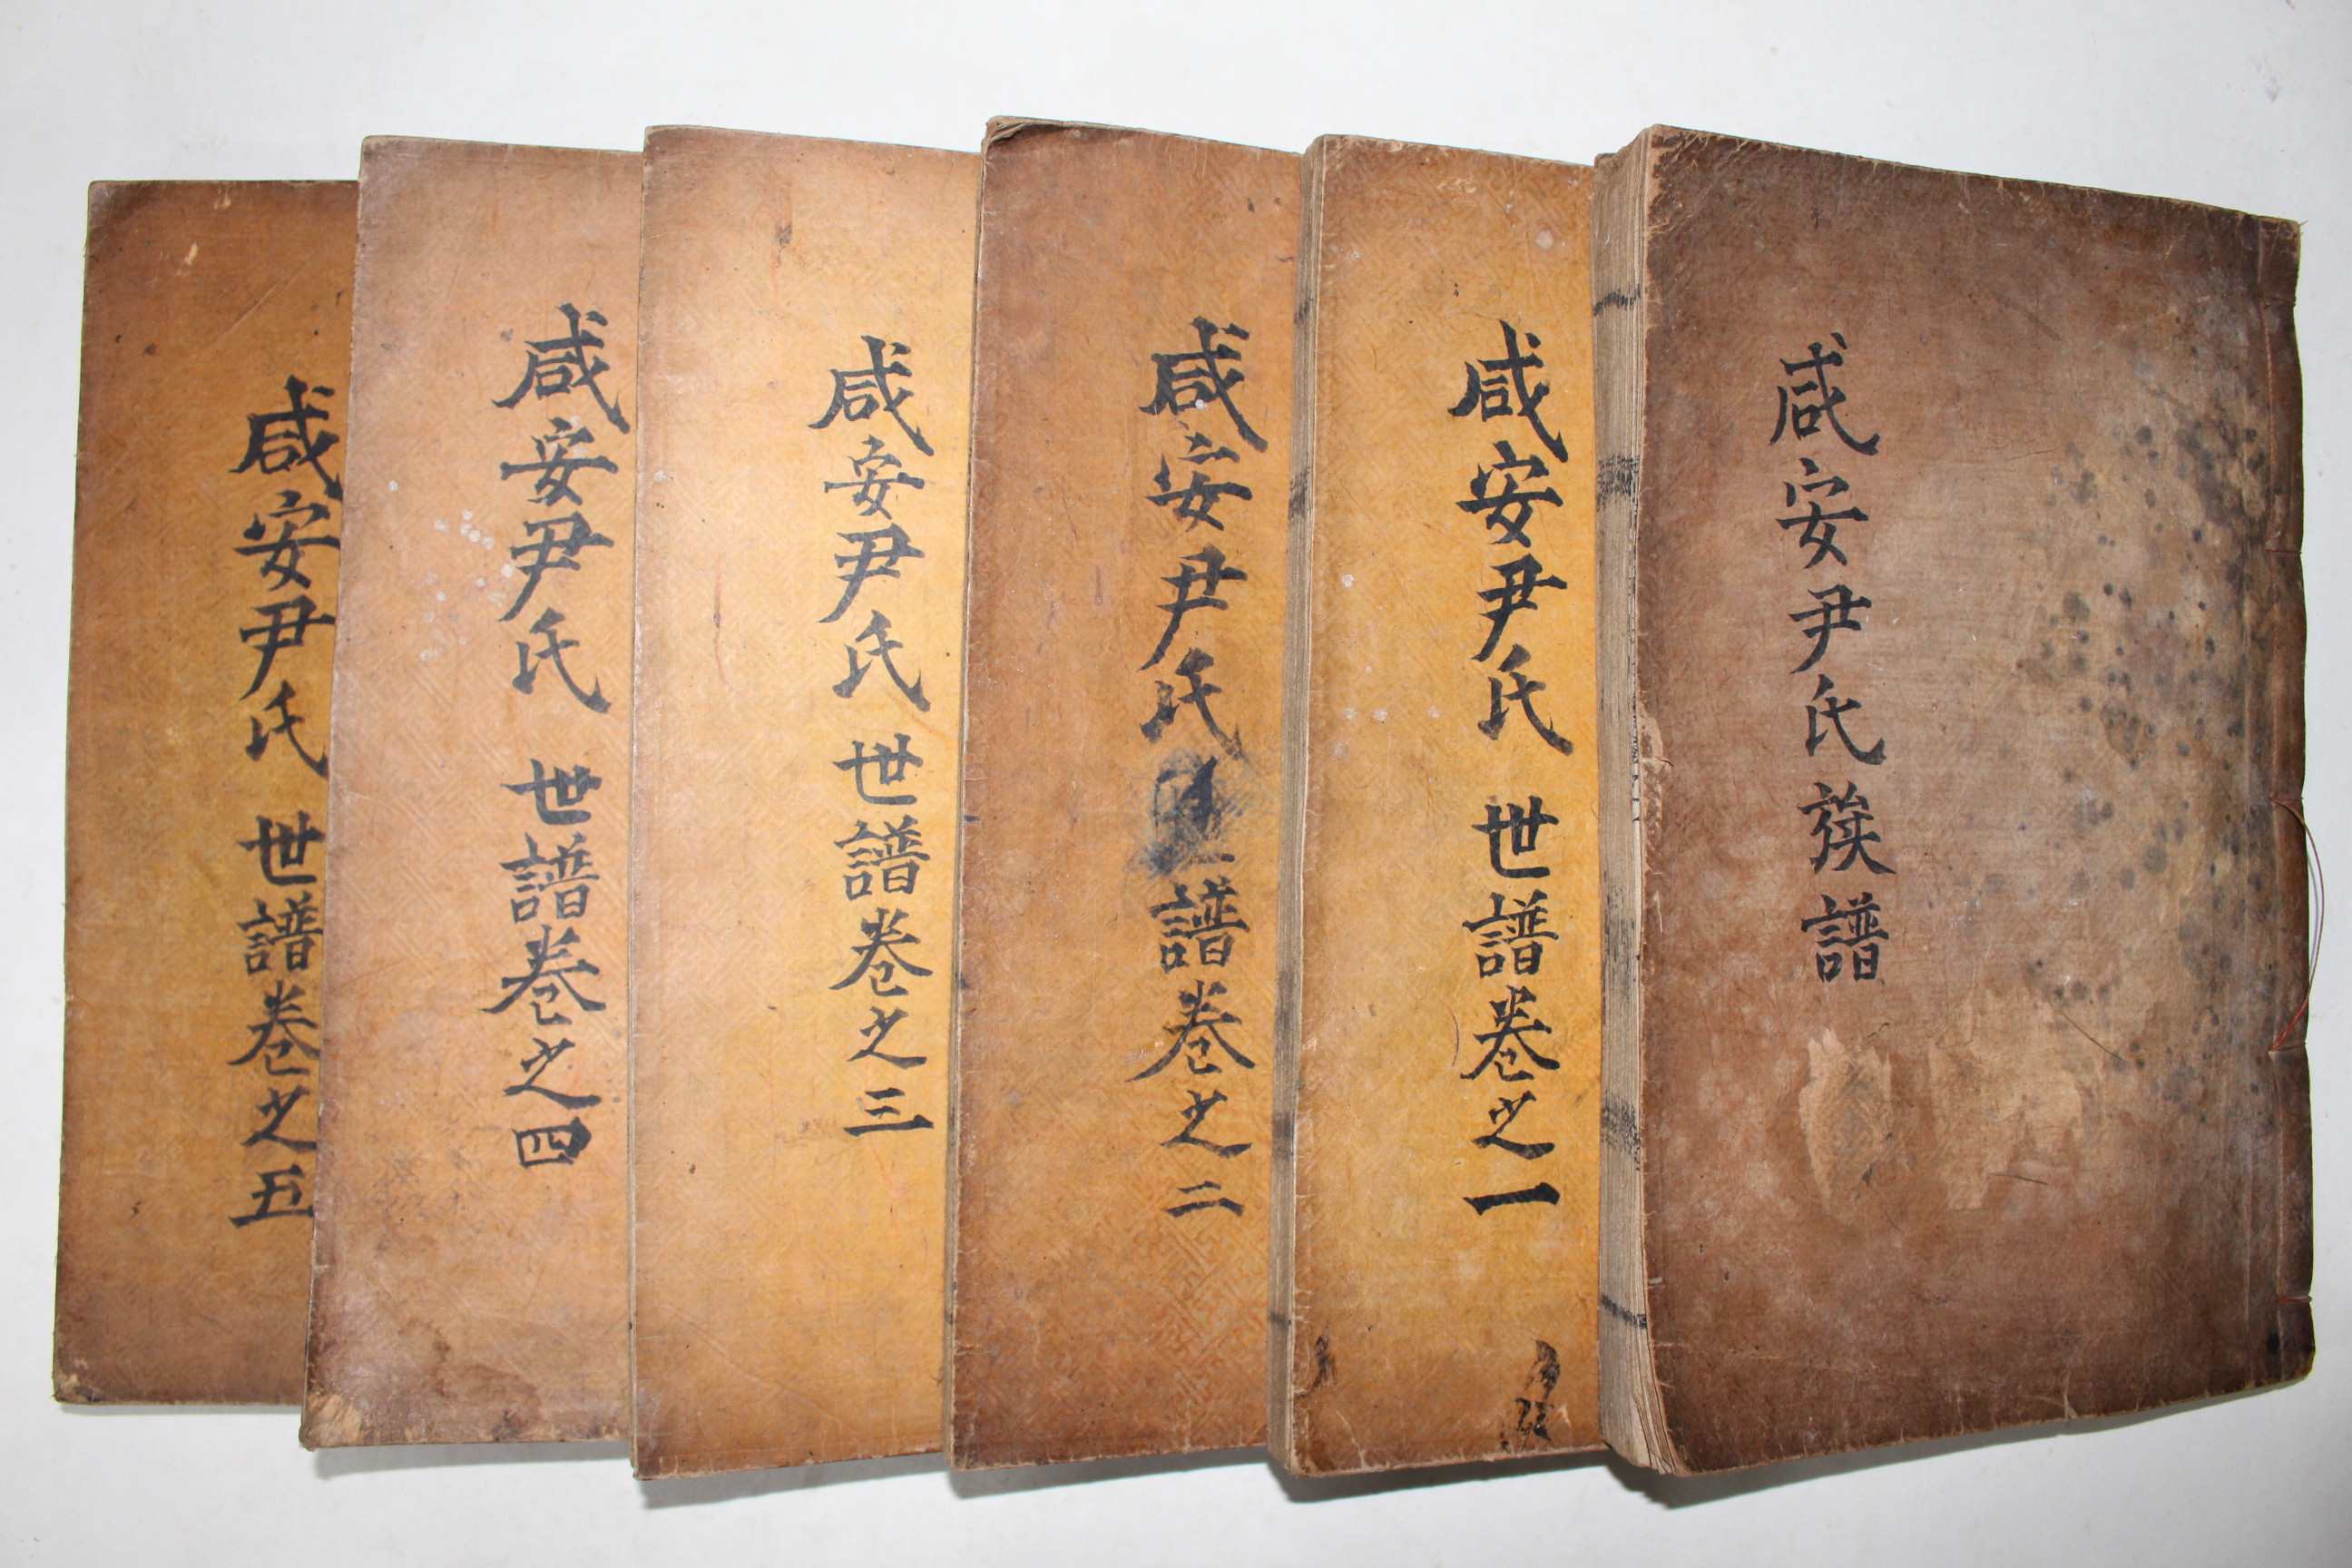 咸安尹氏族譜
咸安尹氏世譜卷之一
咸安尹氏譜卷之二
咸安尹氏世譜卷之三
咸安尹氏世譜卷之四
咸安尹氏世譜卷之五